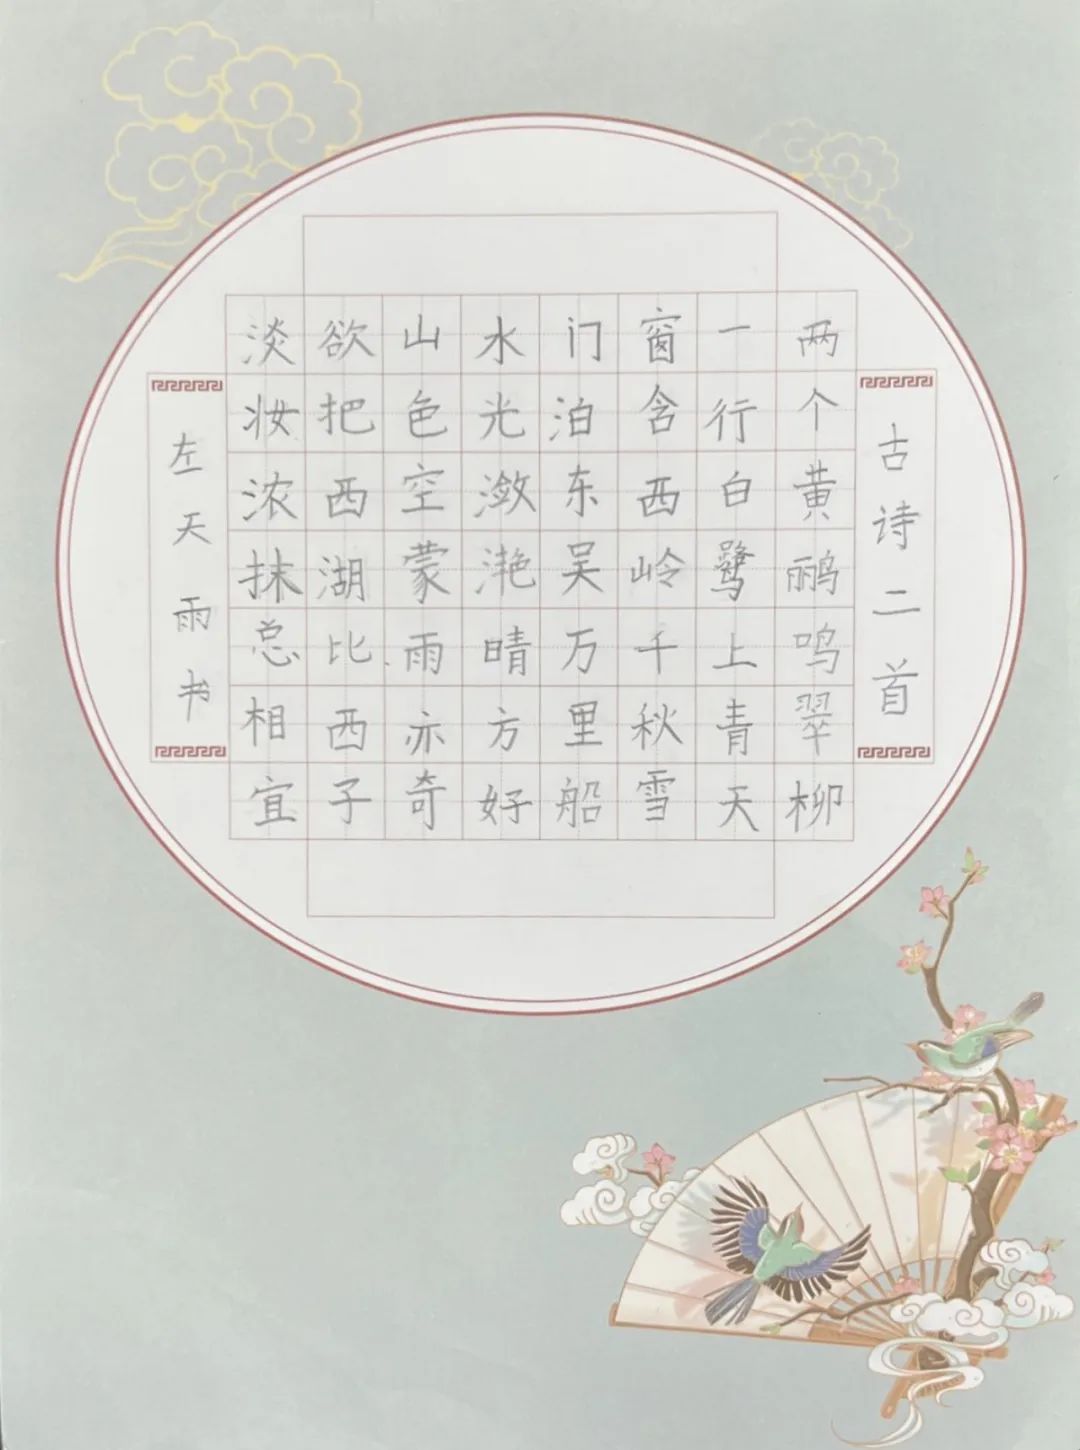 古诗二首
两个黄鹂鸣翠柳
一行白鹭上青天
窗含西岭千秋雪
门泊东吴万里船
水光潋滟晴方好
山色空蒙雨亦奇
欲把西湖比西子
淡妆浓抹总相宜
左天雨书